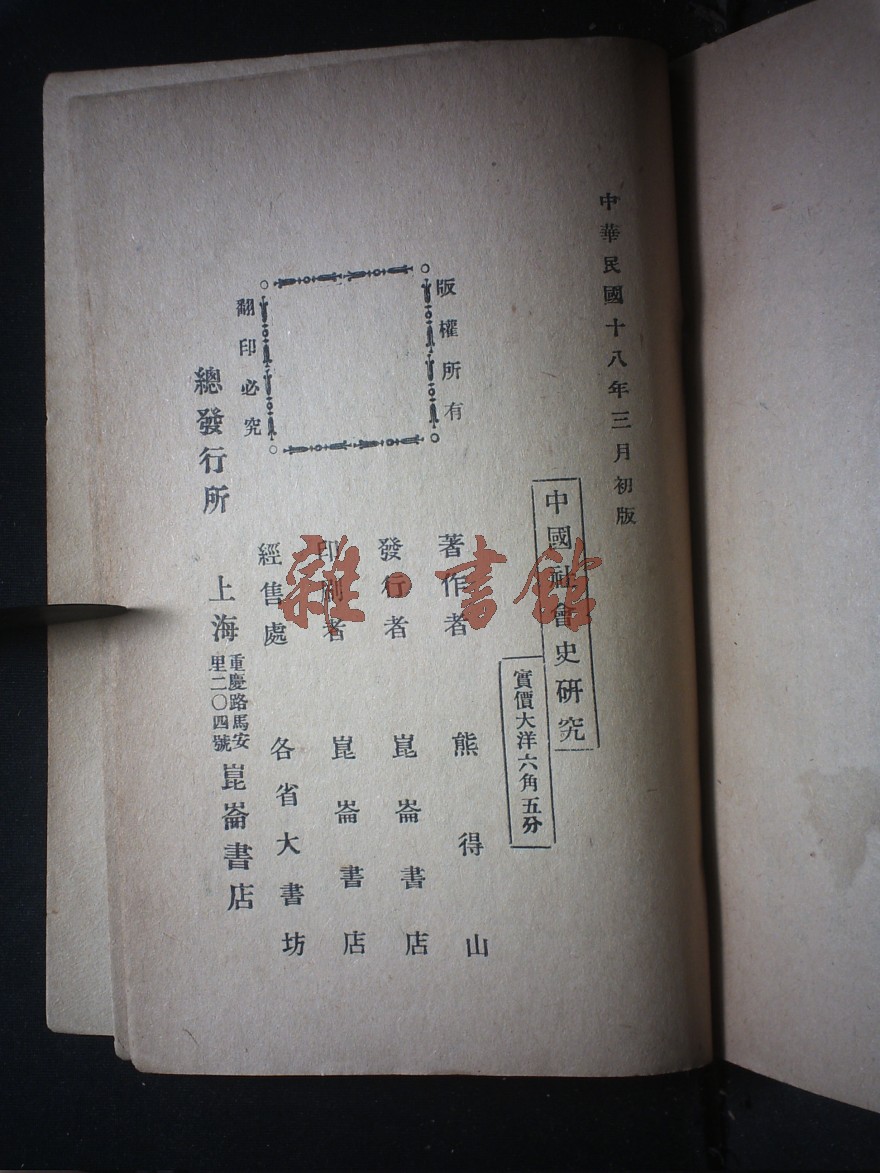 中華民國十八年三月初版
中國社會史研究
實價大洋六角五分
版權所有
翻印必究
著作者 熊得山
發行者 崑崙書店
印刷者 崑崙書店
經售處 各省大書坊
總發行所 上海重慶路馬安里二〇四號崑崙書店
雜·書館